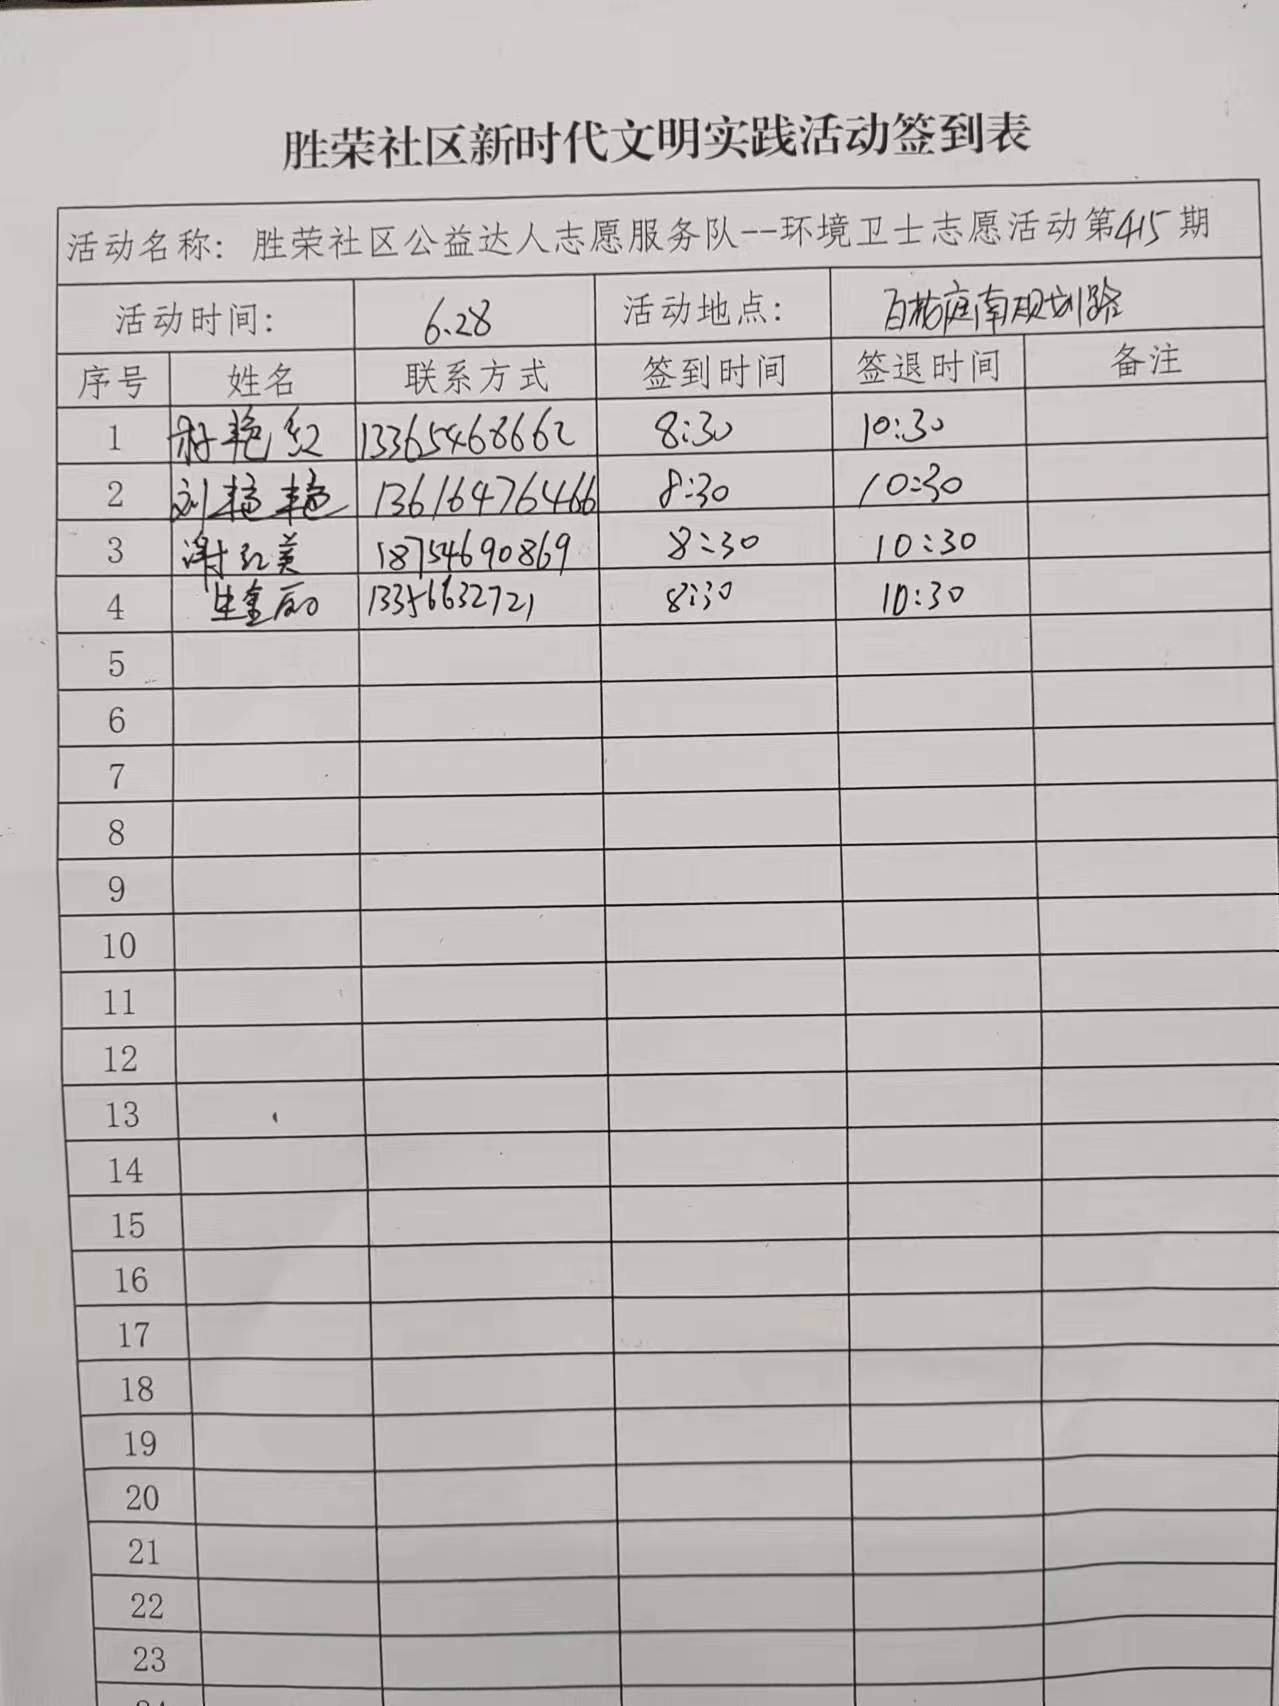 胜荣社区新时代文明实践活动签到表
活动名称：胜荣社区公益达人志愿服务队--环境卫士志愿活动第415期
活动时间： 6.28 活动地点： 百栋庭南规划路
序号 姓名 联系方式 签到时间 签退时间 备注
1 艳红 13365468662 8:30 10:30
2 刘艳艳 13616476466 8:30 10:30
3 谢红美 18754690869 8:30 10:30
4 生金丽 13356632721 8:30 10:30
5
6
7
8
9
10
11
12
13
14
15
16
17
18
19
20
21
22
23